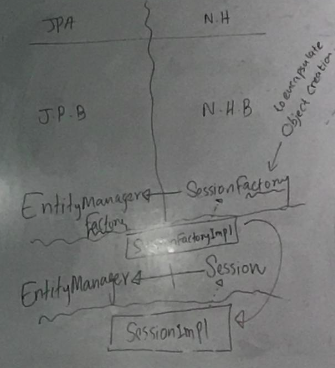 JPA N.H
J.P.B N.H B
to encapsulate
Object Creation
EntityManager SessionFactory
Factory
SessionFactoryImpl
EntityManager Session
SessionImpl